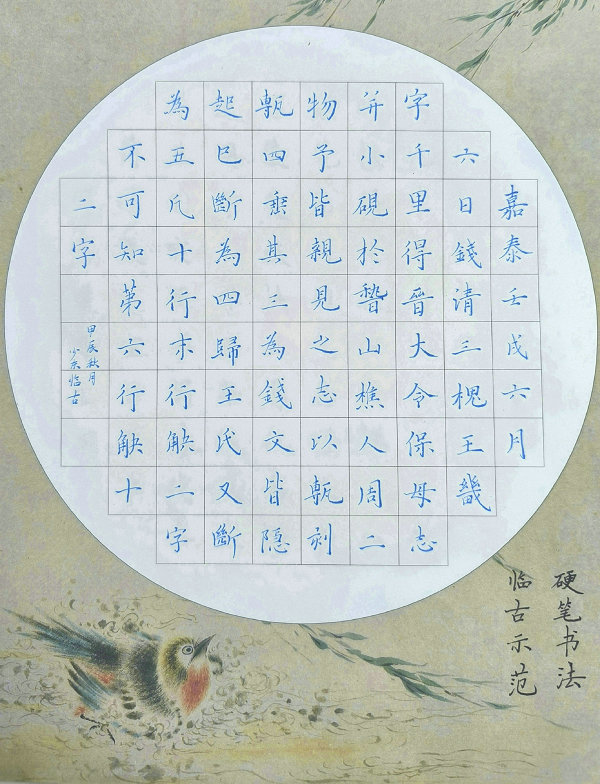 嘉泰壬戌六月
六日錢清三槐王畿
字千里得晉大令保母志
并小硯於稽山樵人周二
物予皆親見之志以甎刻
甎四垂其三為錢文皆隱
起巳斷為四歸王氏又斷
為五凡十行末行觖二字
不可知第六行觖十
二字
甲辰秋月
临古
硬笔书法
临古示范